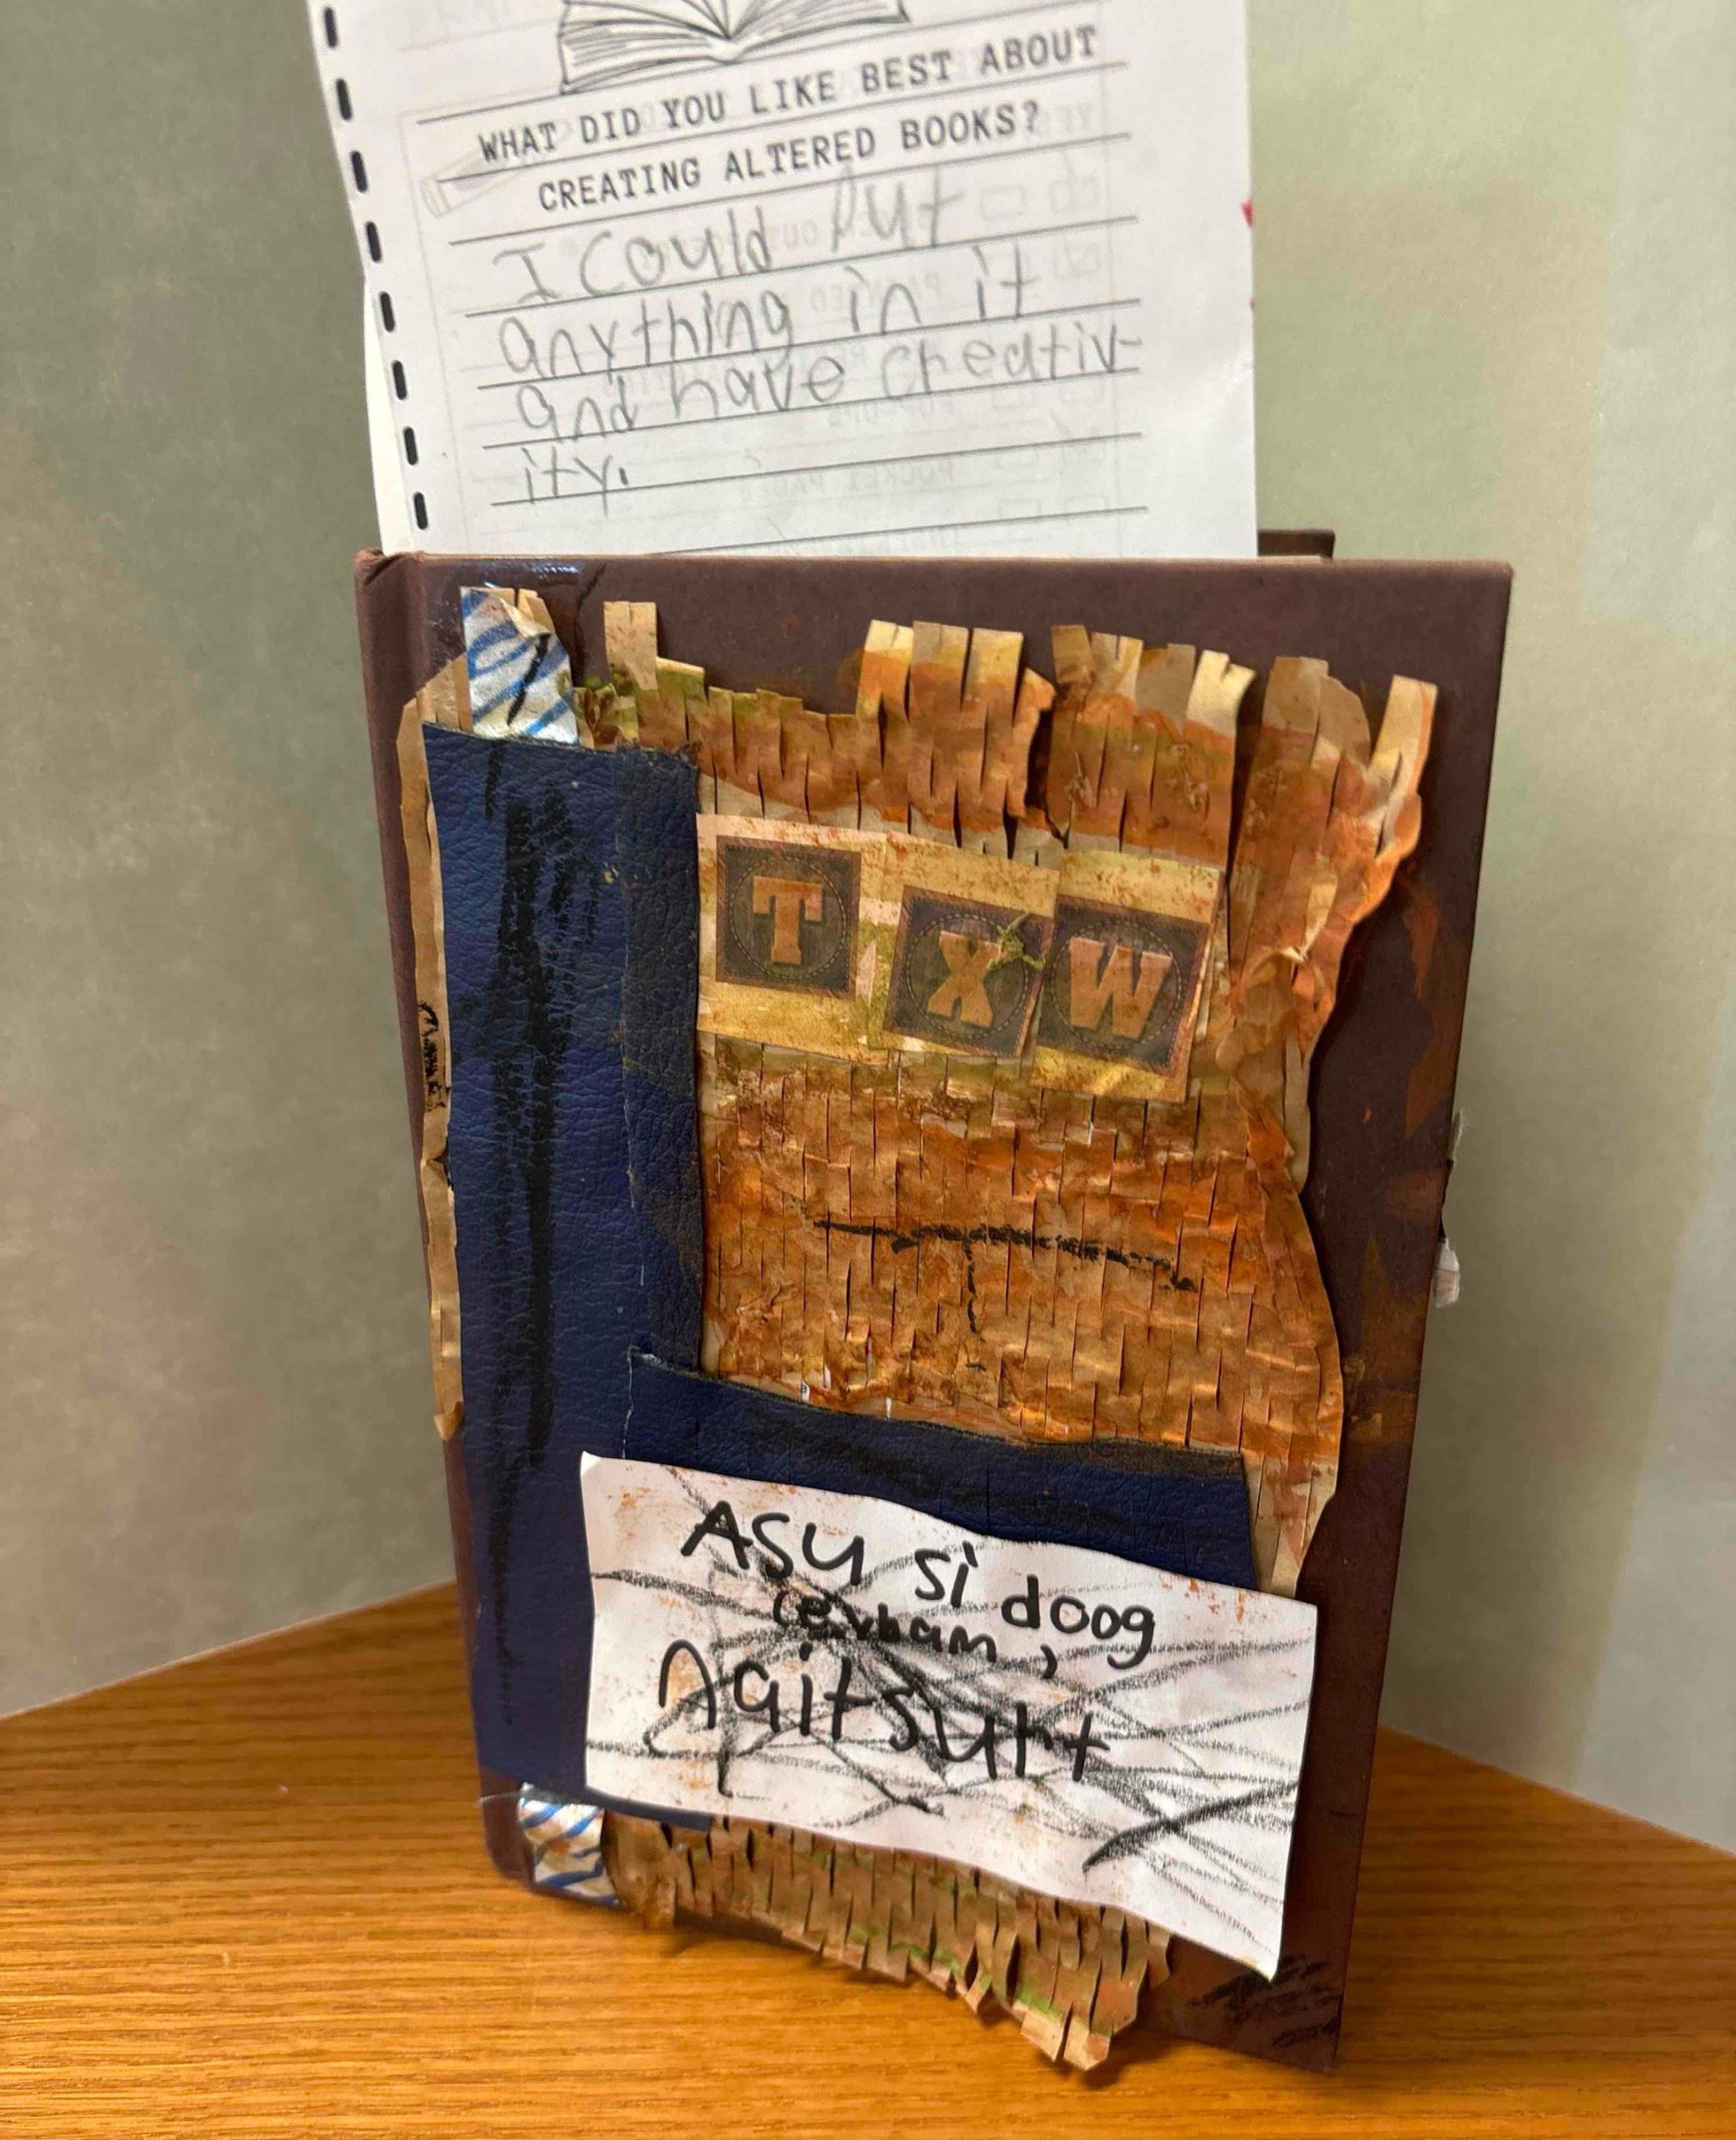 WHAT DID YOU LIKE BEST ABOUT
CREATING ALTERED BOOKS?
I could put
anything in it
and have creativ-
ity.
T X W
ASU si doog
naitsurt